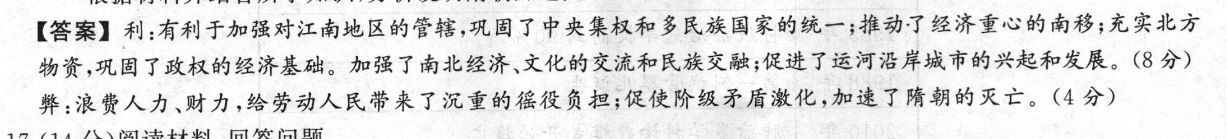 【答案】利:有利于加强对江南地区的管辖,巩固了中央集权和多民族国家的统一;推动了经济重心的南移;充实北方
物资,巩固了政权的经济基础。加强了南北经济、文化的交流和民族交融;促进了运河沿岸城市的兴起和发展。(8分)
弊:浪费人力、财力,给劳动人民带来了沉重的徭役负担;促使阶级矛盾激化,加速了隋朝的灭亡。(4分)
17.(14分)阅读材料,回答问题